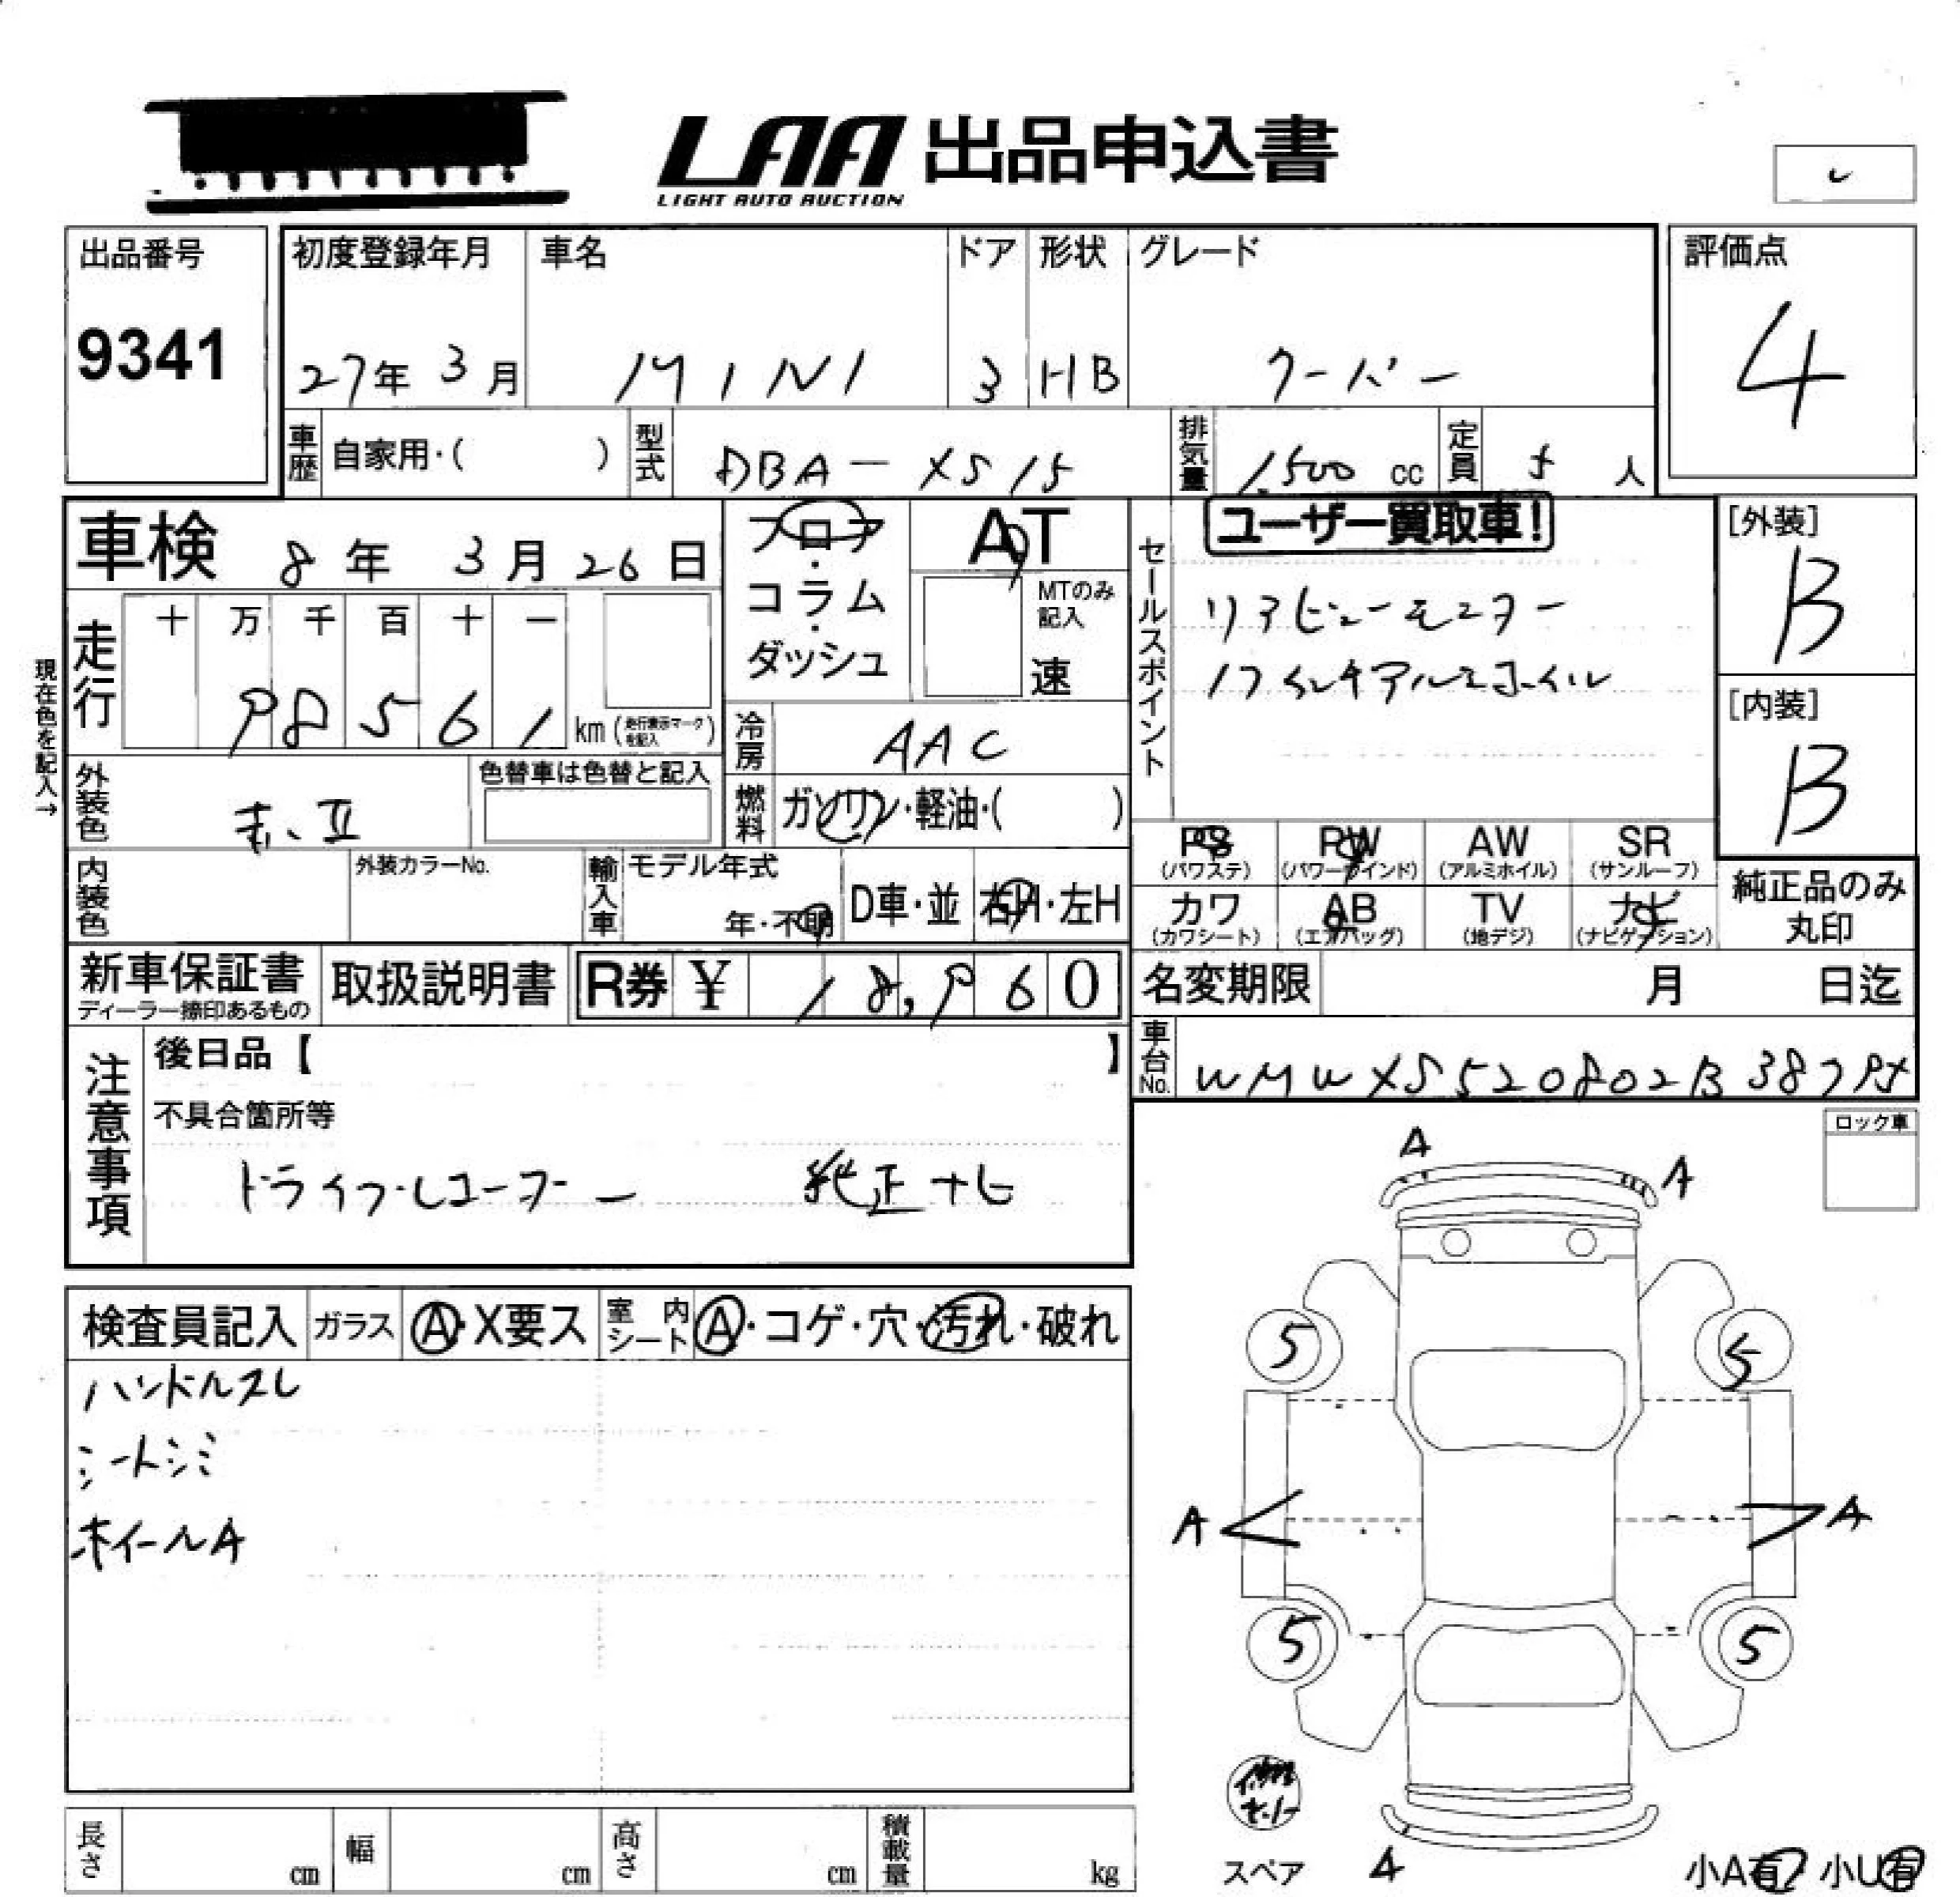 LAA 出品申込書
LIGHT AUTO AUCTION
出品番号
9341
初度登録年月
27年 3月
車名
MINI
ドア
3
形状
HB
グレード
クーパー
評価点
4
車歴 自家用・( )
型式 DBA-XS15
排気量 1,500 cc
定員 5 人
車検 8年 3月 26日
フロア・
コラム・
ダッシュ
AT
MTのみ
記入
速
セールスポイント
ユーザー買取車!
リアビューモニター
17インチアルミホイル
[外装]
B
[内装]
B
現在色を記入→
走行
十 万 千 百 十 一
98561 km (走行表示マークを記入)
冷房 AAC
外装色 赤、II
色替車は色替と記入
燃料 ガソリン・軽油・( )
内装色
外装カラーNo.
輸入車
モデル年式
年・不明
D車・並
右H・左H
PS
(パワステ)
PW
(パワーウインド)
AW
(アルミホイル)
SR
(サンルーフ)
カワ
(カワシート)
AB
(エアバッグ)
TV
(地デジ)
ナビ
(ナビゲーション)
純正品のみ
丸印
新車保証書
ディーラー捺印あるもの
取扱説明書
R券 ¥ 18,960
名変期限 月 日迄
車台No. WMWXS520802B38795
注意事項
後日品【 】
不具合箇所等
ドライブレコーダー 純正ナビ
ロック車
検査員記入
ガラス A・X要ス
室内シート A・コゲ・穴・汚れ・破れ
ハンドルスレ
シートシミ
ホイールA
A
A
5
5
A
A
5
5
スペア
A
小A有 小U有
長さ cm
幅 cm
高さ cm
積載量 kg